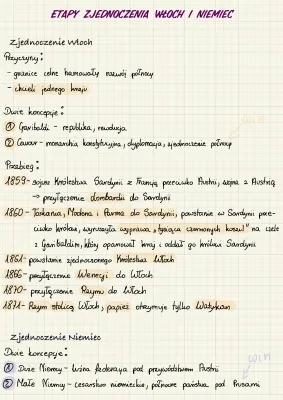 ETAPY ZJEDNOCZENIA WŁOCH I NIEMIEC
Zjednoczenie Włoch
Przyczyny:
- granice celne hamowały rozwój północy
- chcieli jednego kraju
Dwie koncepcje:
win
① Garibaldi - republika, rewolucja
② Cavour - monarchia konstytucyjna, dyplomacja, zjednoczenie północy
Przebieg:
1859 - sojusz Królestwa Sardynii z Francją przeciwko Austrii, wojna z Austrią
→ przyłączenie Lombardii do Sardynii
1860 - Toskania, Modena i Parma do Sardynii, powstanie w Sardynii prze-
ciwko królowi, wyruszyła wyprawa „tysiąca czerwonych koszul" na czele
z Garibaldim, który opanował kraj i oddał go królowi Sardynii
1861 - powstanie zjednoczonego Królestwa Włoch
1866 - przyłączenie Wenecji do Włoch
1870 - przyłączenie Rzymu do Włoch
1871 - Rzym stolicą Włoch, papież otrzymuje tylko Watykan
Zjednoczenie Niemiec
Dwie koncepcje:
win
① Duże Niemcy - luźna federacja pod przywództwem Austrii
② Małe Niemcy - cesarstwo niemieckie, północne państwa pod Prusami